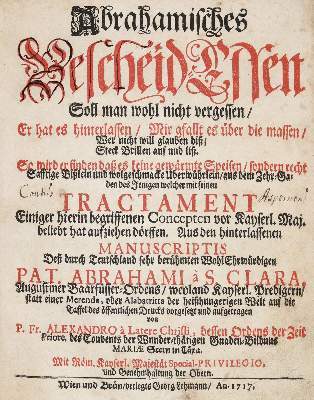 Abrahamisches
Bescheid-Essen
Soll man wohl nicht vergessen/
Er hat es hinterlassen/ Mir gfallt es über die massen/
Wer nicht will glauben diß/
Steck Brillen auf und liß.
So wird er finden daß es keine gewärmte Speisen/ sondern recht
Safftige Bißlein und wolgeschmacke Uberwührlein/ aus dem Zehr-Ga-
den des Jenigen welcher mit seinen
TRACTAMENT
Einiger hierin begriffenen Concepten vor Kayserl. Maj.
beliebt hat aufziehen dörffen. Aus den hinterlassenen
MANUSCRIPTIS
Deß durch Teutschland sehr berühmten Wohl Ehrwürdigen
PAT. ABRAHAMI à S. CLARA,
Augustiner Baarfüsser-Ordens/ weyland Kayserl. Predigern/
statt einer Merenda, oder Alabatritts der heißhungerigen Welt auf die
Taffel des öffentlichen Drucks vorgesetzt und aufgetragen
von
P. Fr. ALEXANDRO à Latere Christi, dessen Ordens der Zeit
Priore, des Convents der Wunder-thätigen Gnaden-Bildnus
MARIÆ Stern in Taxa.
Mit Röm. Kayserl. Majestät Special-PRIVILEGIO,
und Genehmhaltung der Obern.
Wien und Brün/verlegts Georg Lehmann/ An. 1717.